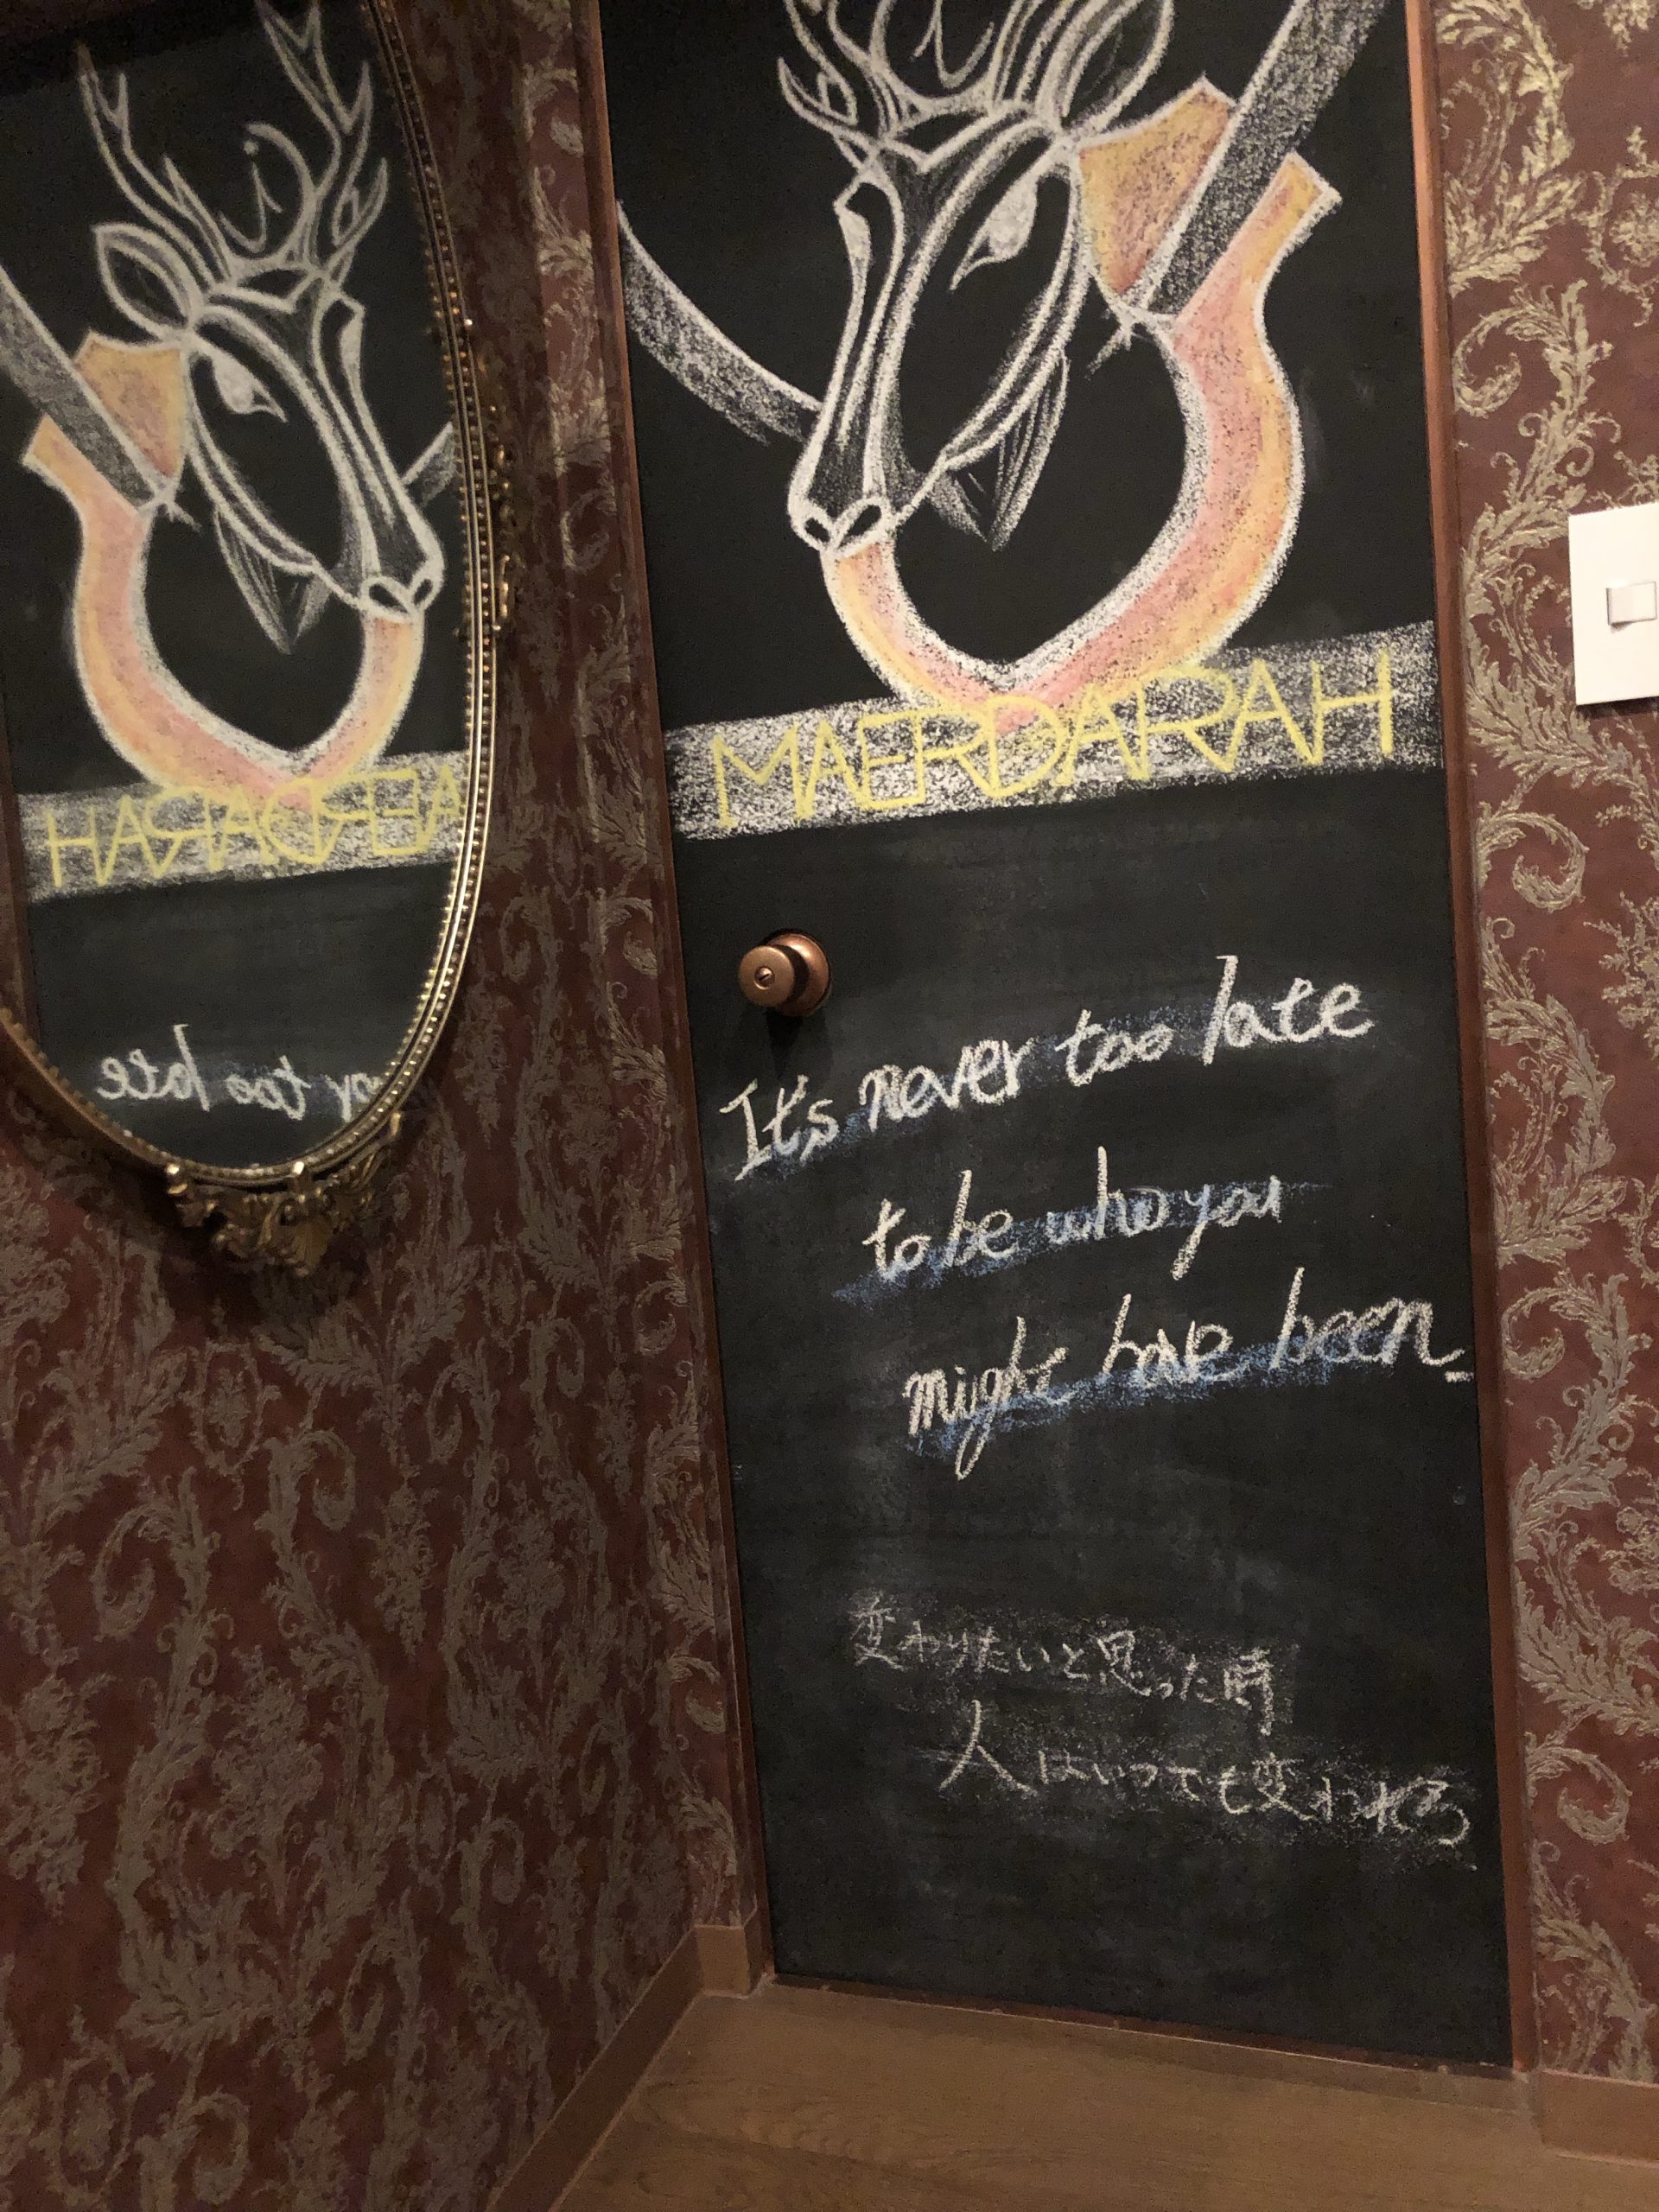 MAERDARAH
It's never too late
to be who you
might have been.
変わりたいと思った時
人はいつでも変われる
HARADREA
ny too late